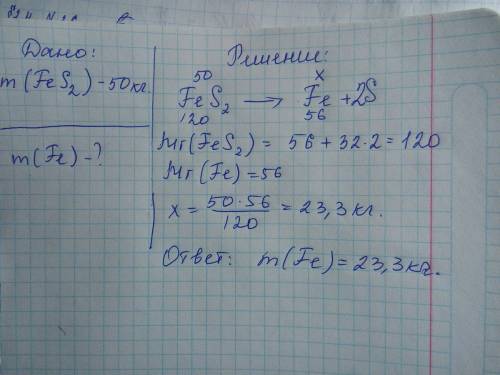 Дано:
m(FeS2) - 50 кг.
m(Fe) - ?
Решение:
50 x
FeS2 → Fe + 2S
120 56
Mr(FeS2) = 56 + 32·2 = 120
Mr(Fe) = 56
x = 50·56 / 120 = 23,3 кг.
Ответ: m(Fe) = 23,3 кг.